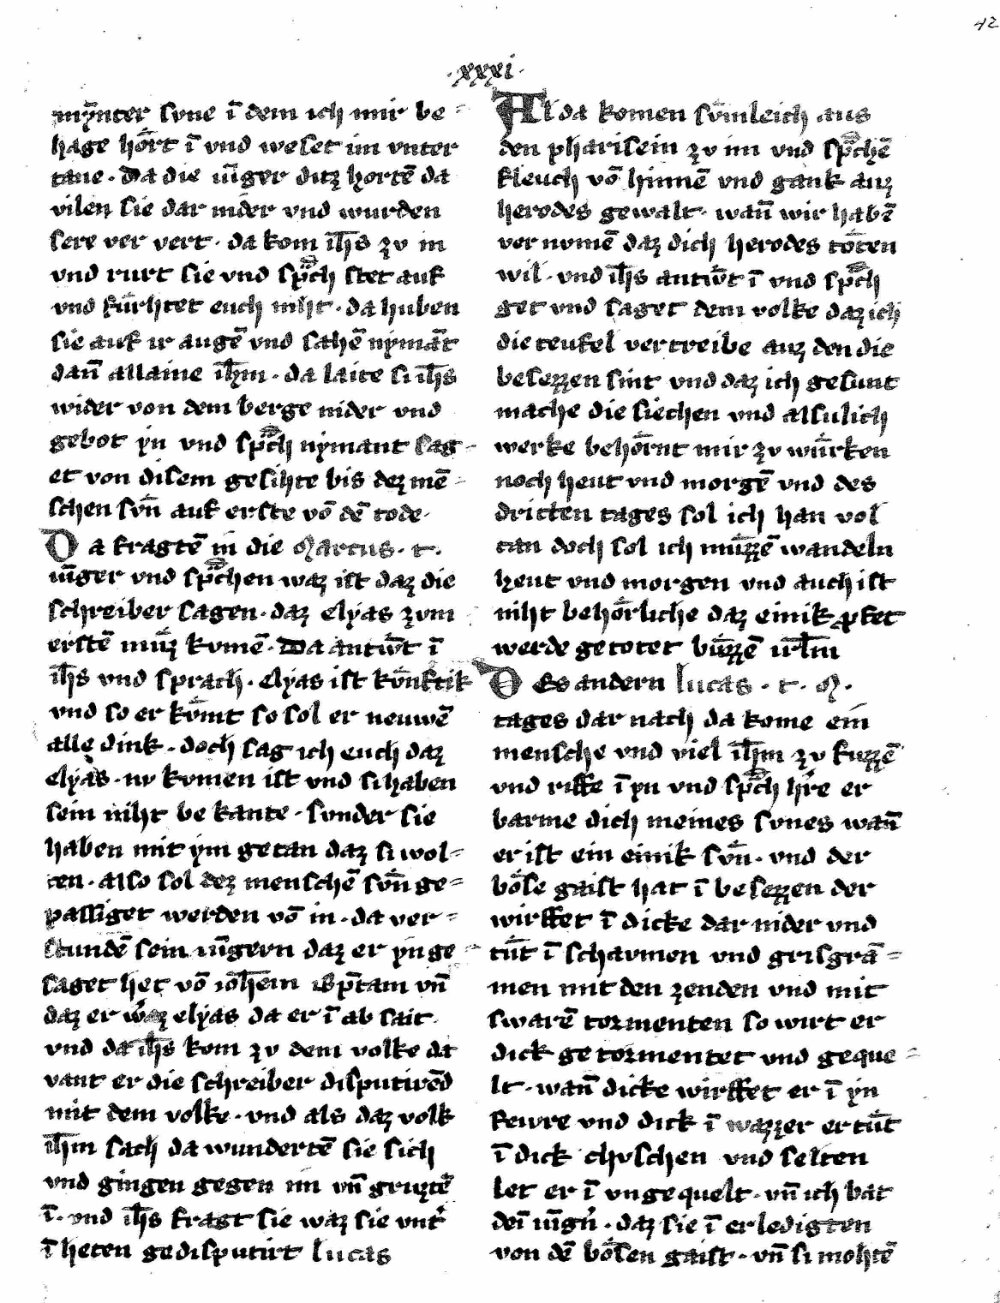 42
·xxxi·
mẏnter svne ī dem ich mir be⸗
hage hoͤrt ī vnd weset im vnter
tane · Da die iūger ditz hortē da
vilen sie dar nider vnd wurden
sere ver vert · da kom ih̄s zv in
vnd rurt sie vnd spͣch stet auf
vnd fuͤrhtet euch niht · da huben
sie auf ir augē vnd sahē nẏmāt
dan̄ allaine ih̄m · da laite si ih̄s
wider von dem berge nider vnd
gebot ẏn vnd spͣch nẏmant sag⸗
et von disem gesihte bis dez mē⸗
schen svͦn auf erste vō dē tode·
Da fragtē in die Marcus · t ·
iūger vnd spͣchen waz ist daz die
schreiber sagen · daz elẏas zvm
erstē muͤz komē · Da antwͦt ī
ih̄s vnd sprach · elẏas ist kvͤnftik
vnd so er kvͤmt so sol er neuwē
alle dink · doch sag ich euch daz
elẏas · nv kvmen ist vnd si haben
sein niht be kante · sunder sie
haben mit ẏm getan daz si wol⸗
ten · also sol dez menschē svͦn ge⸗
passiget werden vō in · da ver⸗
stundē sein iūgern daz er ẏn ge⸗
saget het vō ioh̄em bap̄tam vn̄
daz er waz elẏas da er ī ab sait
vnd da ih̄s kom zv dem volke da
vant er die schreiber disputirēd
mit dem volke · vnd als daz volk
ih̄m sach da wundertē sie sich
vnd gingen gegen im vn̄ gruztē
ī · vnd ih̄s fragt sie waz sie vntͤ
ī heten gedisputirt lucas
Al da komen svͤmleich aus
den pharisein zv im vnd spͣchē
fleuch vō hinnē vnd gank auz
herodes gewalt · wan̄ wir habē
vernvmē daz dich herodes toͤten
wil · vnd ih̄s antwͦt ī vnd spͣch
get vnd saget dem volke daz ich
die teufel vertreibe auz den die
besezzen sint vnd daz ich gesunt
mache die siechen vnd alsulich
werke behoͤrnt mir zv wuͤrken
noch heut vnd morgē vnd des
dritten tages sol ich han vol
tan doch sol ich muͤzzē wandeln
heut vnd morgen vnd auch ist
niht behoͤrliche daz einik ꝓfet
werde getotet buͤzzē irl̄m
Des andern lucas · t · M ·
tages dar nach da kome ein
mensche vnd viel ih̄m zv fuzzē
vnd riffe ī ẏn vnd spͣch hr̄e er
barme dich meines svnes wan̄
er ist ein einik svͦn · vnd der
boͤse gaist hat ī besezzen der
wirffet ī dicke dar nider vnd
tuͤt ī schaumen vnd grisgrā⸗
men mit den zenden vnd mit
swarē tormenten so wirt er
dick getormentet vnd geque⸗
lt · wan̄ dicke wirffet er ī ẏn
fewre vnd dick ī wazzer er tuͤt
ī dick chvschen vnd selten
let er ī vngequelt · vn̄ ich bat
dei iūgͤn · daz sie ī erledigten
von dē boͤsen gaist · vn̄ si mohtē